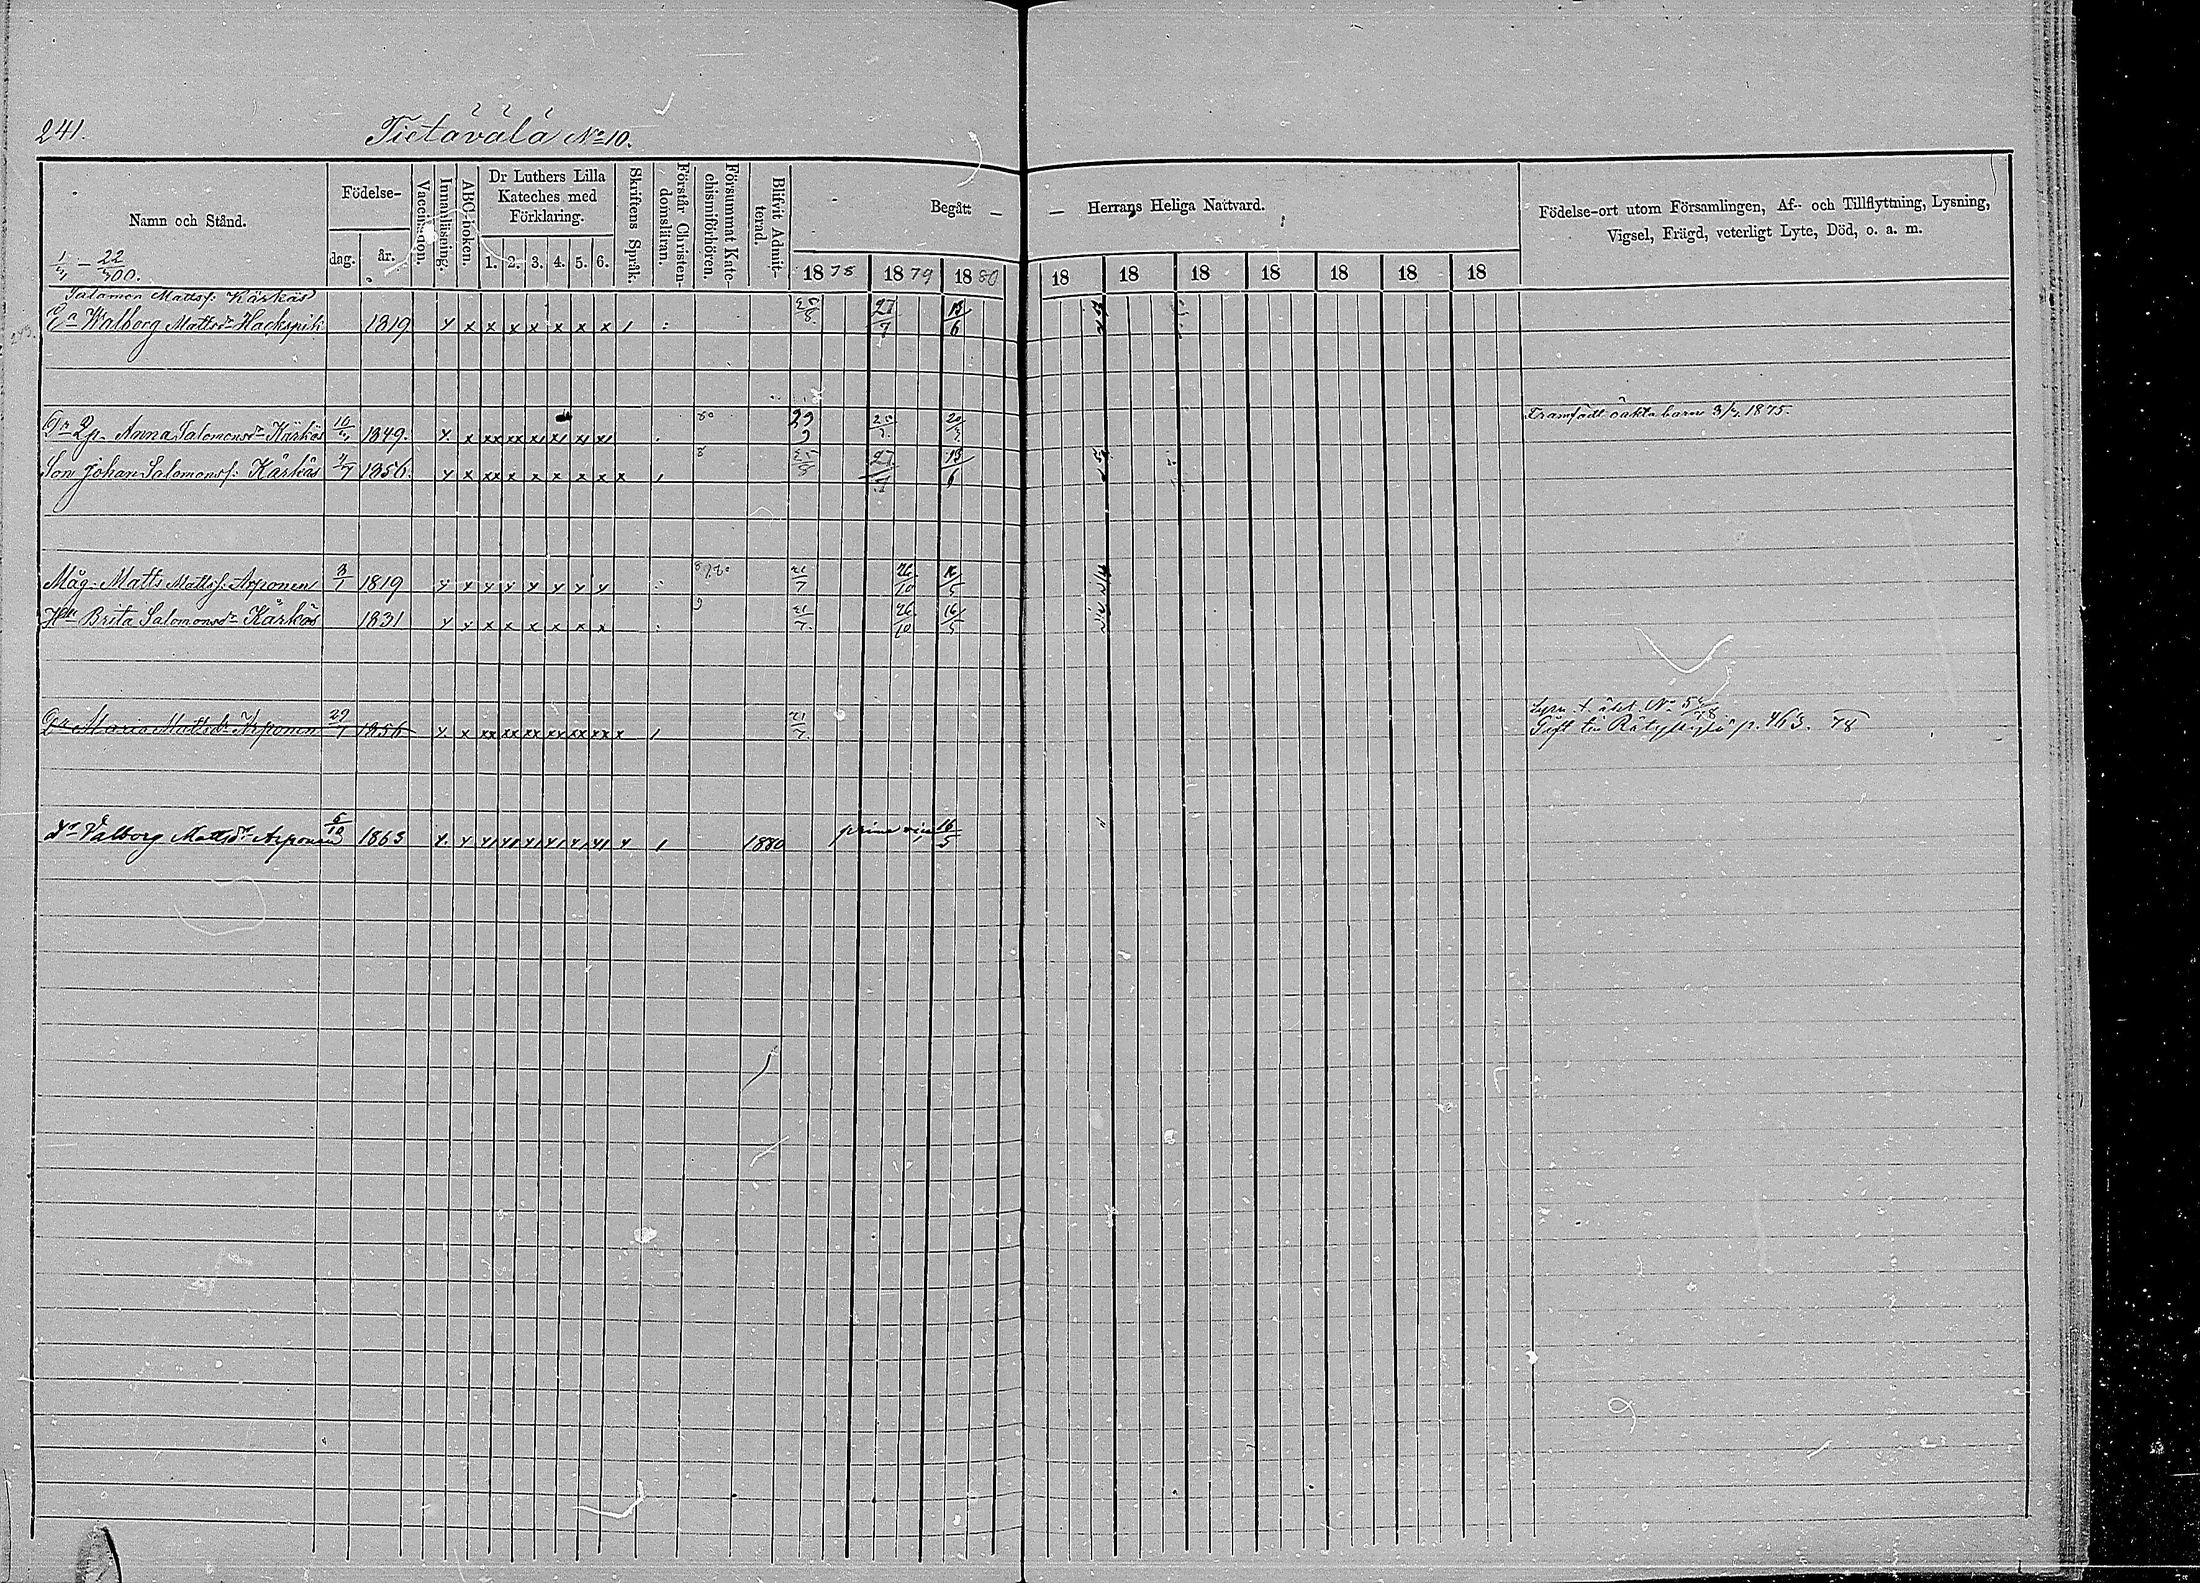 241. Tietävälä No 10.
Namn och Stånd.
Födelse-
dag.
år.
Vaccination.
Innanläsning.
ABC-boken.
Dr Luthers Lilla
Kateches med
Förklaring.
1. 2. 3. 4. 5. 6.
Skriftens Språk.
Förstår Christen-
domsläran.
Försummat Kate-
chismiförhören.
Blifvit Admit-
terad.
Begått — — Herrans Heliga Nattvard.
1878 1879 1880 18 18 18 18 18 18 18
Födelse-ort utom Församlingen, Af- och Tillflyttning, Lysning,
Vigsel, Frägd, veterligt Lyte, Död, o. a. m.
1/4 — 22/400.
Salomon Mattsf. Kärkäs
Ea Walborg Mattsdr Hackspik 1819 x x x x x x x x 27/7 13/6
Dr Lp. Anna Salomonsdr Kärkäs 1849. x x xx xx x x x x Framfödt oäkta barn 3/4 1875.
Son Johan Salomonsf. Kärkäs 1856. x x xx x x x x x x 27/7 13/6
Måg. Matts Mattsf. Arponen 3/1 1819 x x x x x x x x 21/7 26/10 16/5
Hu Brita Salomonsdr Kärkäs 1831 x x x x x x x x 21/7 26/10 16/5
Dr Maria Mattsdr Arponen 29/1 1856 x x xx xx xx xx xx xx x 21/7
Gift till p. 463. 78
Dr Valborg Mattsdr Arponen 6/10 1863 x x x x x x x x x 1880 prima vice 16/5